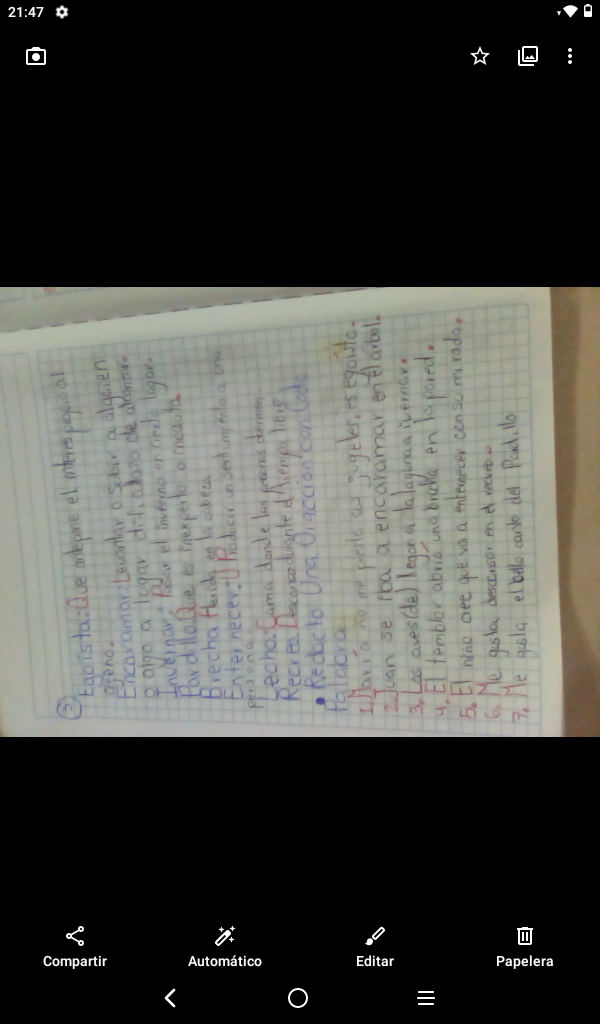 21:47
3
Egoísta: Que antepone el interes propio al
ajeno.
Encaramar: Levantar o subir a alguien
o algo a lugar dificultoso de alcanzar.
Invernar: Pasar el invierno en cierto lugar.
Pardillo: Que es inexperto o incauta.
Brecha Herida en la cabeza
Enternecer: Producir un sentimiento a una
persona.
Lecho: Cama donde las personas dermen
Recrea Descanso durante el tiempo libre
• Redacto Una Oracción con Cada
Palabra
1. María no me preste sus jugetes, es egoista.
2. Juan se iba a encaramar en el arbol.
3. Las aves (de) legan a la laguna a ivernar.
4. El temblor abrió una brecha en la pared.
5. El niño cree que va a enternecer con su mirada.
6. Me gusta descansar en el recreo.
7. Me gusta el bello canto del Pardillo
Compartir
Automático
Editar
Papelera